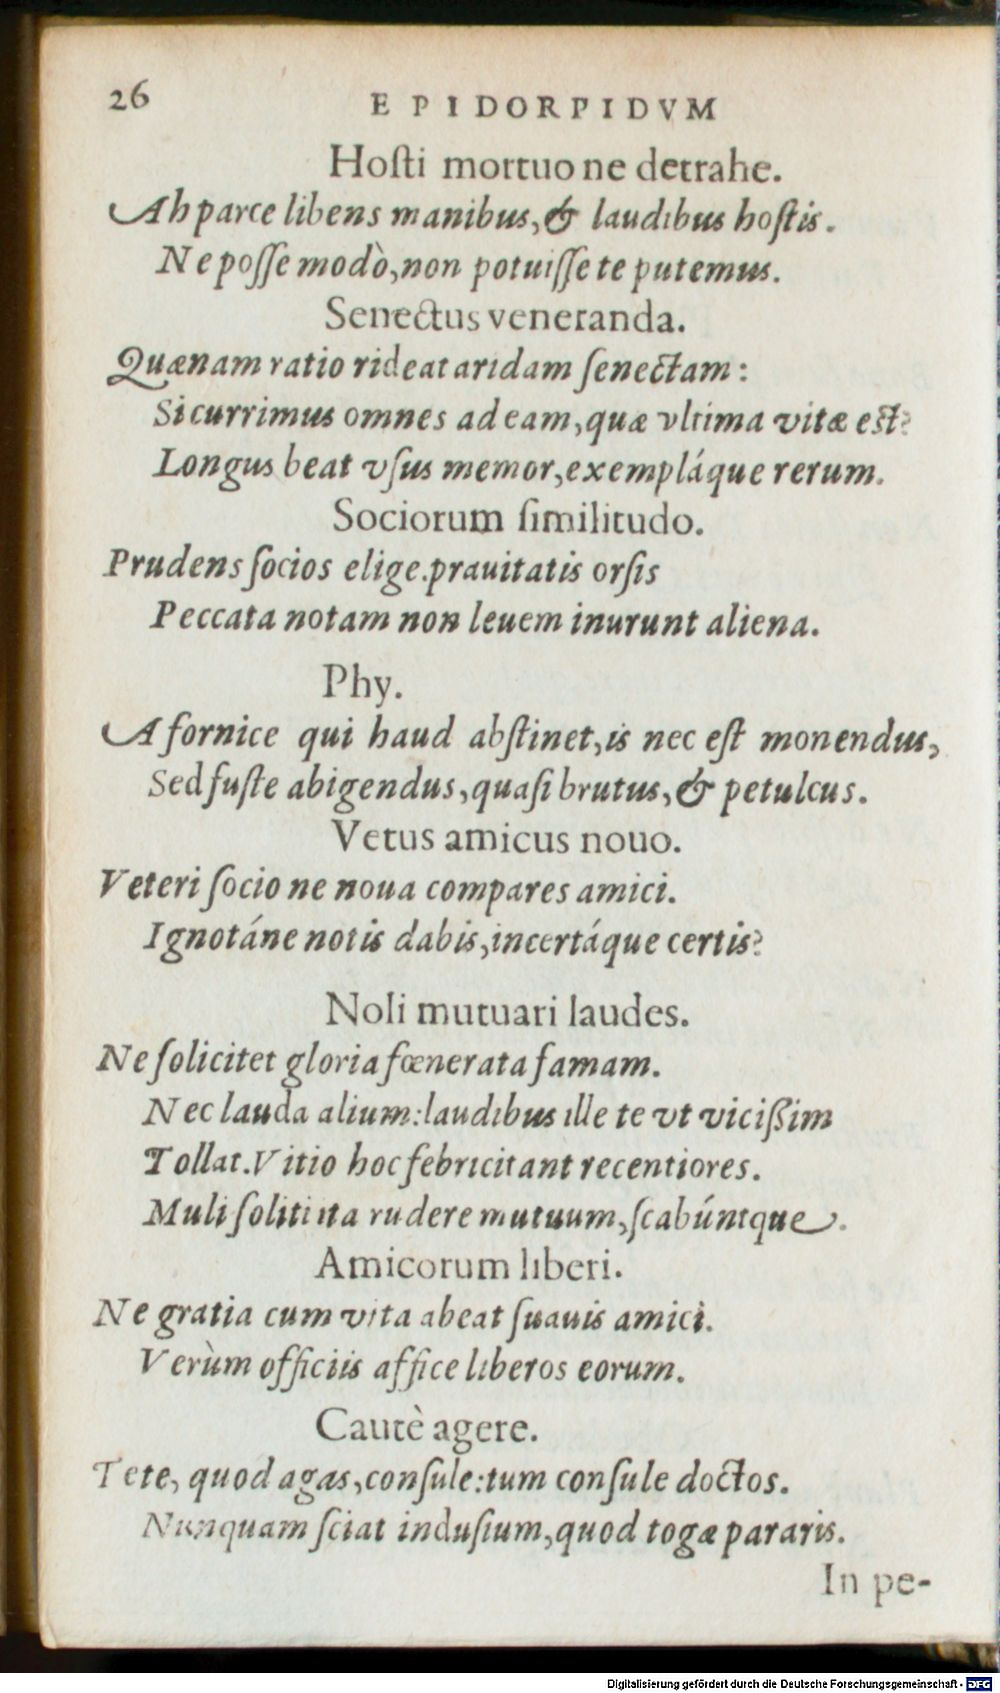 26
EPIDORPIDVM
Hoſti mortuo ne detrahe.
Ah parce libens manibus, & laudibus hoſtis.
Ne poſſe modò, non potuiſſe te putemus.
Senectus veneranda.
Quænam ratio rideat aridam ſenectam:
Si currimus omnes ad eam, quæ vltima vitæ est?
Longus beat vſus memor, exempláque rerum.
Sociorum ſimilitudo.
Prudens ſocios elige. prauitatis orſis
Peccata notam non leuem inurunt aliena.
Phy.
A fornice qui haud abſtinet, is nec eſt monendus,
Sed fuſte abigendus, quaſi brutus, & petulcus.
Vetus amicus nouo.
Veteri ſocio ne noua compares amici.
Ignotáne notis dabis, incertáque certis?
Noli mutuari laudes.
Ne ſolicitet gloria fœnerata famam.
Nec lauda alium: laudibus ille te vt vicißim
Tollat. Vitio hoc febricitant recentiores.
Muli ſoliti ita rudere mutuum, ſcabúntque.
Amicorum liberi.
Ne gratia cum vita abeat ſuauis amici.
Verùm officiis affice liberos eorum.
Cautè agere.
Tete, quod agas, conſule: tum conſule doctos.
Nunquam ſciat induſium, quod togæ pararis.
In pe-
Digitalisierung gefördert durch die Deutsche Forschungsgemeinschaft - DFG